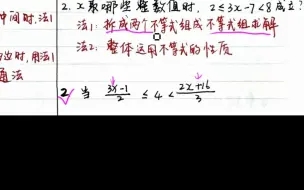 2. x取哪些整数值时, 2≤3x-7<8成立?
中间时,法1
法1: 拆成两个不等式组成不等式组求解
时,用法1
法2: 整体运用不等式的性质
通法
2 当 (3x-1)/2 ≤ 4 < (2x+16)/3